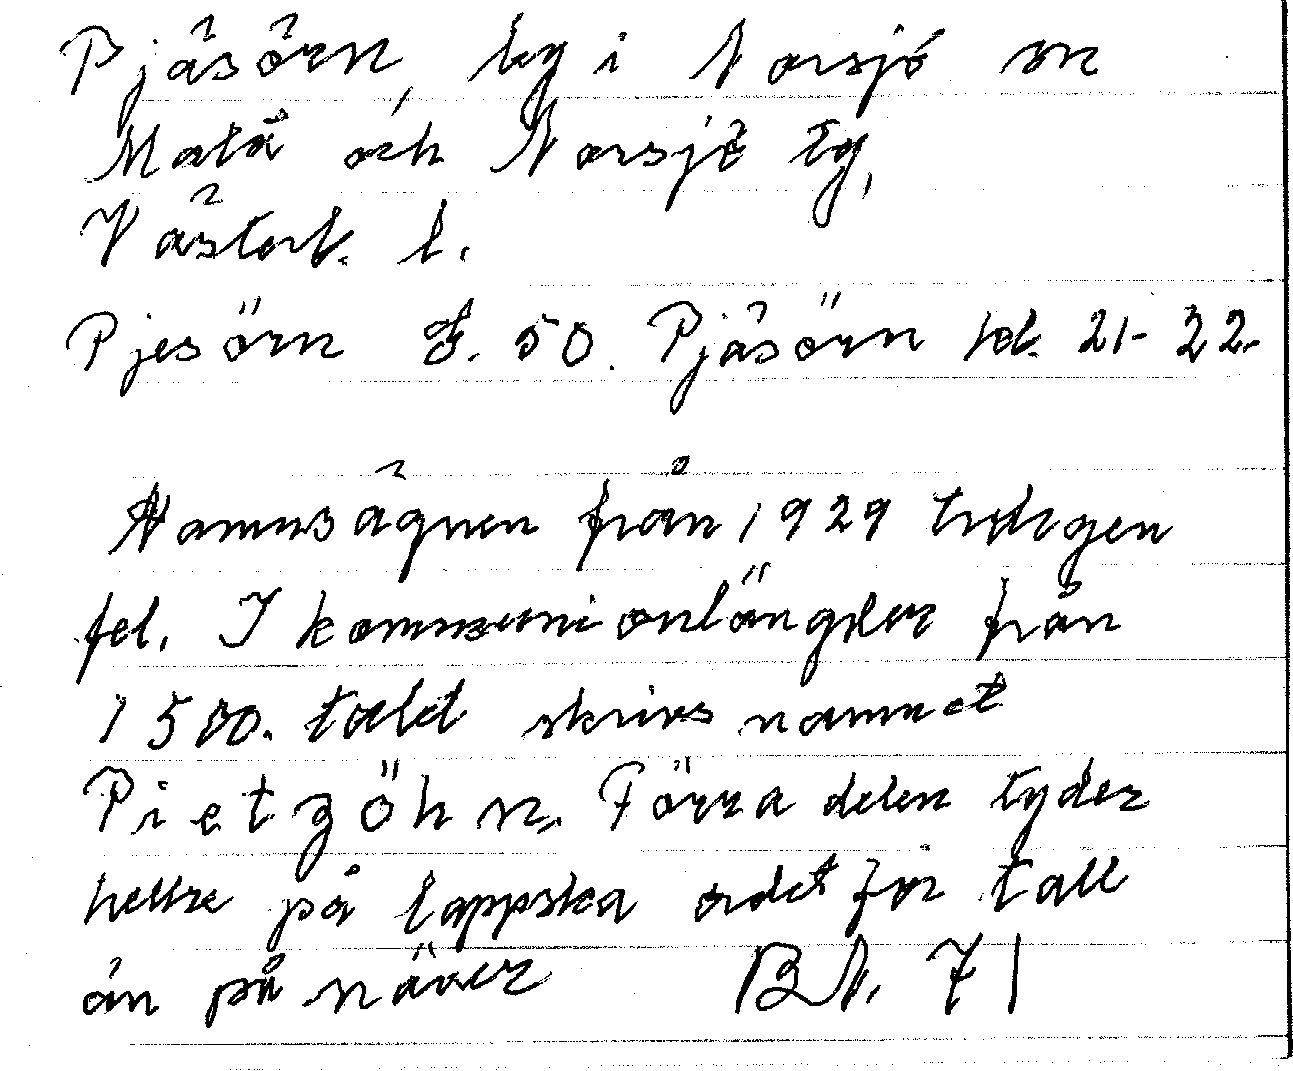 Pjäsörn, by i Norsjö sn
Malå och Norsjö tg,
Västerb. l.
Pjesörn G. 50. Pjäsörn bl. 21-22.
Namnsägnen från 1929 tydligen
fel. I kommunionlängder från
1500. talet skrivs namnet
Pietzöhn. Förra delen tyder
hellre på lappska ordet för tall
än på näver BN. 71